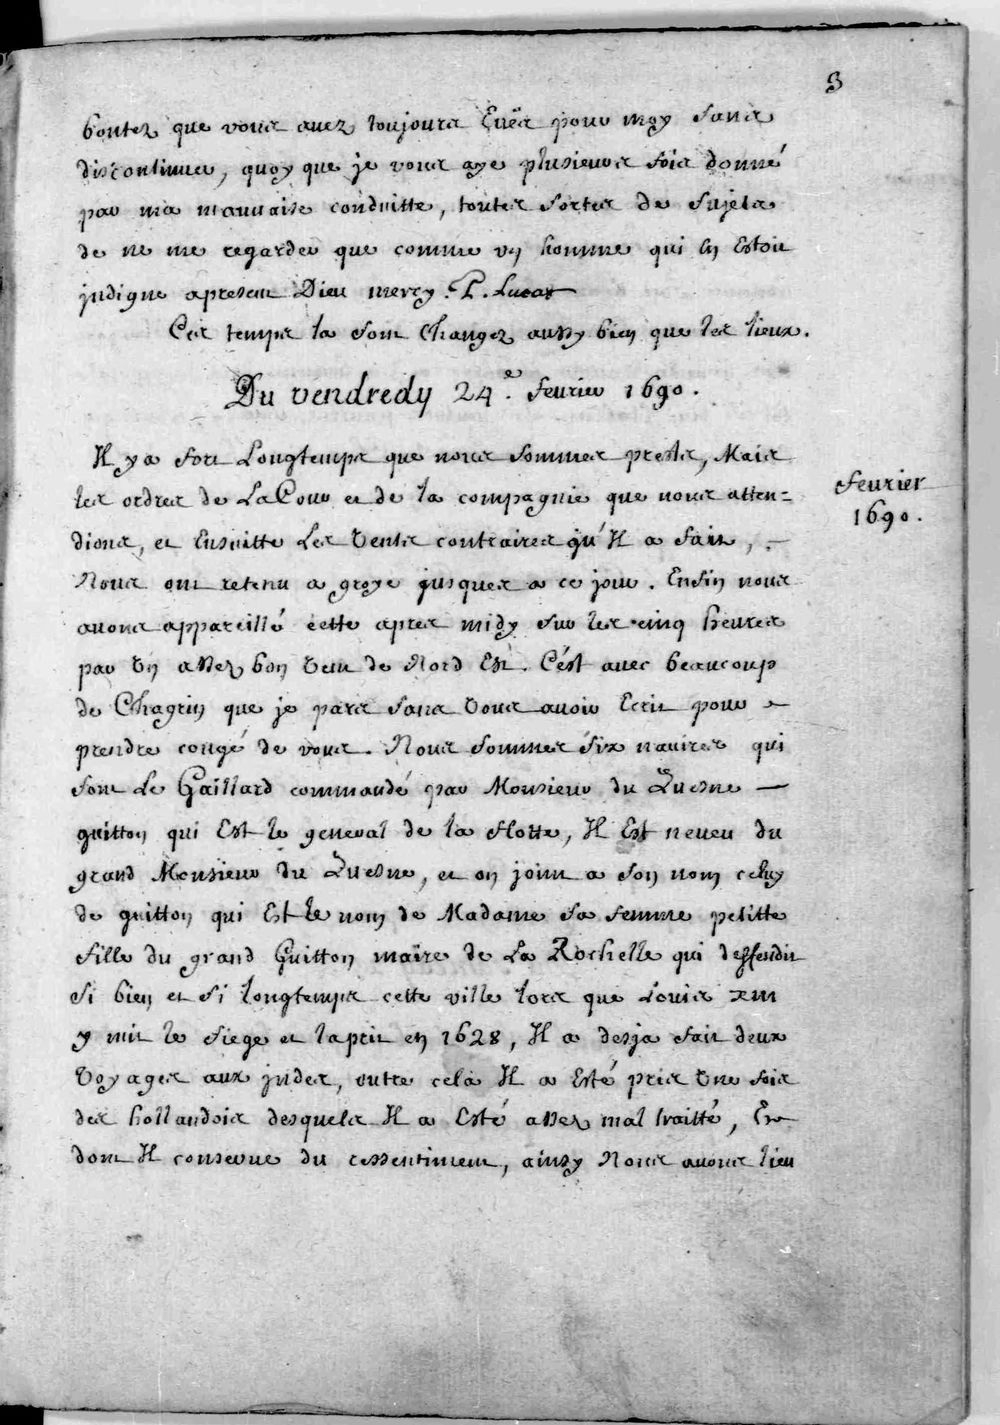 3
bontez que vous avez toujours Euës pour moy sans
discontinuer, quoy que je vous aye plusieurs fois donné
par ma mauvaise conduitte, touttes sortes de sujets
de ne me regarder que comme un homme qui en Estoit
jndigne apresent Dieu mercy. P. Lucas
Ces temps la sont Changez aussy bien que les lieux.
Du vendredy 24.e fevrier 1690.
Il y a fort Longtemps que nous sommes prests, Mais
les ordres de La Cour et de la compagnie que nous atten=
dions, et Ensuitte Les Vents contraires qu'Il a fait,
Nous ont retenu a groye jusques a ce jour. Enfin nous
avons appareillé cette apres midy sur les cinq heures
par Un assez bon Vent de Nord Est. C'est avec beaucoup
de Chagrin que je pars sans Vous avoir Ecrit pour
prendre congé de vous. Nous sommes six navires qui
sont Le Gaillard commandé par Monsieur du Quesne
guitton qui Est le general de la flotte, Il Est neveu du
grand Monsieur du Quesne, et on joint a son nom celuy
de guitton qui Est le nom de Madame sa femme petitte
fille du grand Guitton maire de La Rochelle qui deffendit
si bien et si longtemps cette ville lors que Louis xiii
y mit le siege et la prit en 1628, Il a desja fait deux
Voyages aux jndes, outre cela Il a Esté pris Une fois
des hollandois desquels Il a Esté assez mal traitté, Et
dont Il conserve du ressentiment, ainsy Nous avons lieu
fevrier
1690.